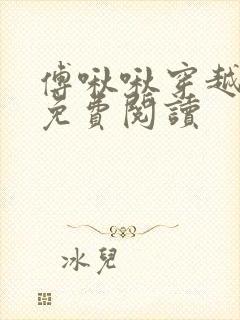 傅啾啾穿越
免費閱讀
冰兒